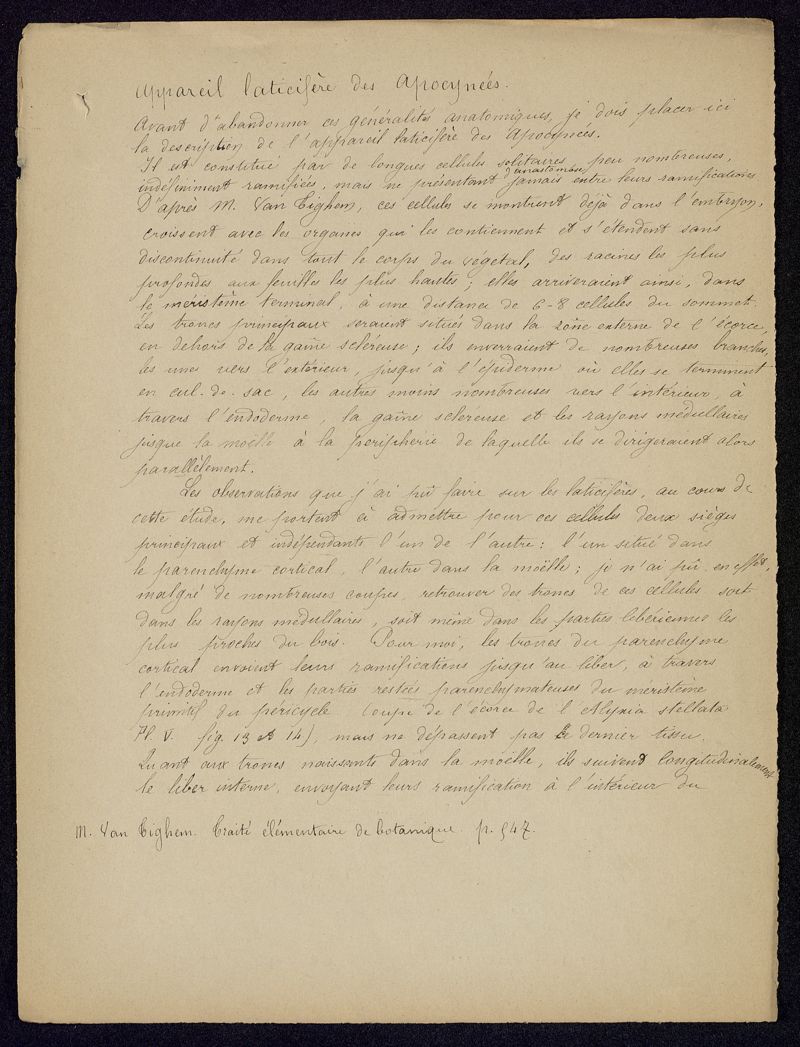 Appareil laticifère des Apocynées.
Avant d'abandonner ces généralités anatomiques, je dois placer ici
la description de l'appareil laticifère des Apocynées.
Il est constitué par de longues cellules solitaires, peu nombreuses,
d'anastomoses
indéfiniment ramifiées, mais ne présentant jamais entre leurs ramifications
D'après M. Van Tighem, ces cellules se montrent déjà dans l'embryon,
croissent avec les organes qui les contiennent et s'étendent sans
discontinuité dans tout le corps du végétal, des racines les plus
profondes aux feuilles les plus hautes; elles arriveraient ainsi, dans
le meristème terminal, à une distance de 6-8 cellules du sommet.
Les troncs principaux seraient situés dans la zône externe de l'écorce,
en dehors de la gaîne scléreuse; ils enverraient de nombreuses branches,
les unes vers l'extérieur, jusqu'à l'épiderme où elles se terminent
en cul-de-sac, les autres moins nombreuses vers l'intérieur, à
travers l'endoderme, la gaîne scléreuse et les rayons médullaires
jusque la moëlle à la périphérie de laquelle ils se dirigeraient alors
parallèlement.
Les observations que j'ai pû faire sur les laticifères, au cours de
cette étude, me portent à admettre pour ces cellules deux sièges
principaux et indépendants l'un de l'autre: l'un situé dans
le parenchyme cortical, l'autre dans la moëlle; je n'ai pû en effet,
malgré de nombreuses coupes, retrouver des troncs de ces cellules soit
dans les rayons médullaires, soit même dans les parties libériennes les
plus proches du bois. Pour moi, les troncs du parenchyme
cortical envoient leurs ramifications jusqu'au liber, à travers
l'endoderme et les parties restées parenchymateuses du méristème
primitif du péricycle (coupe de l'écorce de l'Alyxia stellata
Pl. V. fig. 13 et 14), mais ne dépassent pas ce dernier tissu.
Quant aux troncs naissants dans la moëlle, ils suivent longitudinalement
le liber interne, envoyant leurs ramification à l'intérieur du
M. Van Tighem. Traité élémentaire de botanique. p. 547.